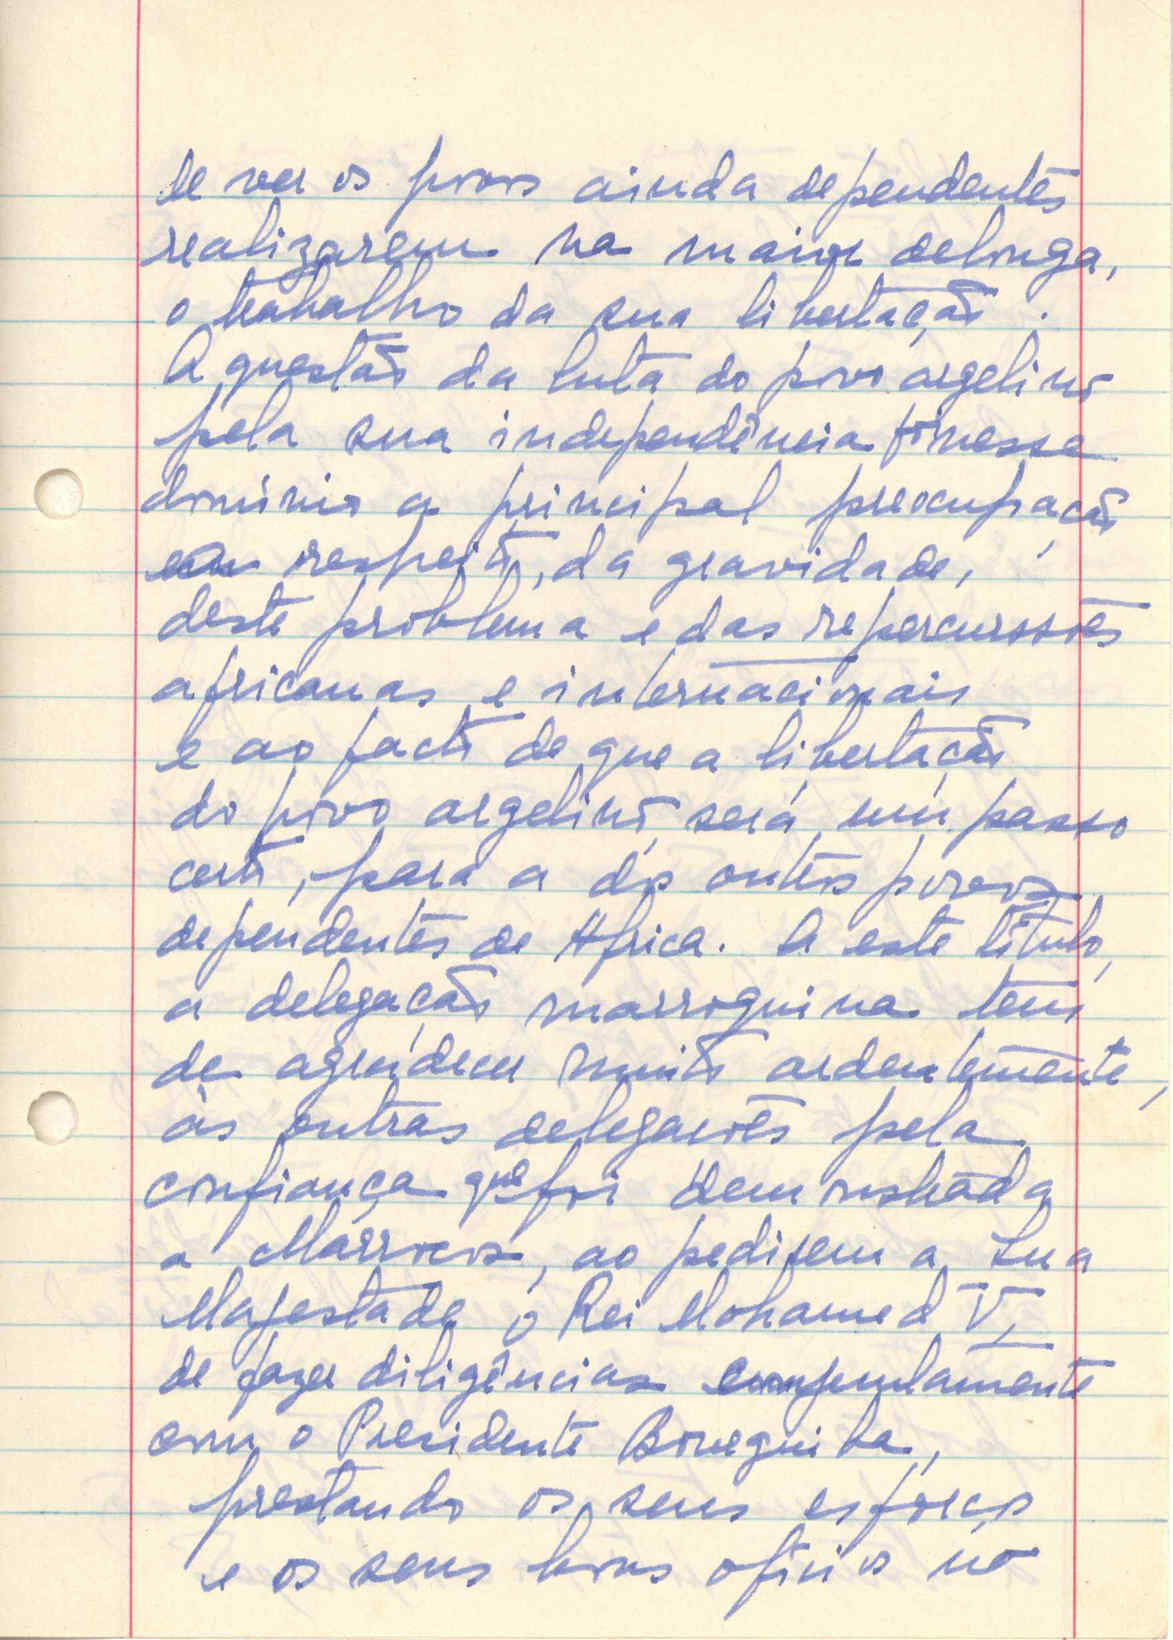 de ver os povos ainda dependentes
realizarem na maior delonga,
o trabalho da sua libertação.
A questão da luta do povo argelino
pela sua independência foi nesse
domínio a principal preocupação
respeito, da gravidade,
deste problema e das repercussões
africanas e internacionais
e ao facto de que a libertação
do povo argelino será um passo
certo, para a dos outros povos
dependentes de Africa. A este título,
a delegação marroquina tem
de agradecer muito ardentemente,
às outras delegações pela
confiança que foi demonstrada
a Marrocos, ao pedirem a Sua
Majestade o Rei Mohamed V,
de fazer diligências conjuntamente
com o Presidente Bourguiba,
prestando os seus esforços
e os seus bons ofícios no